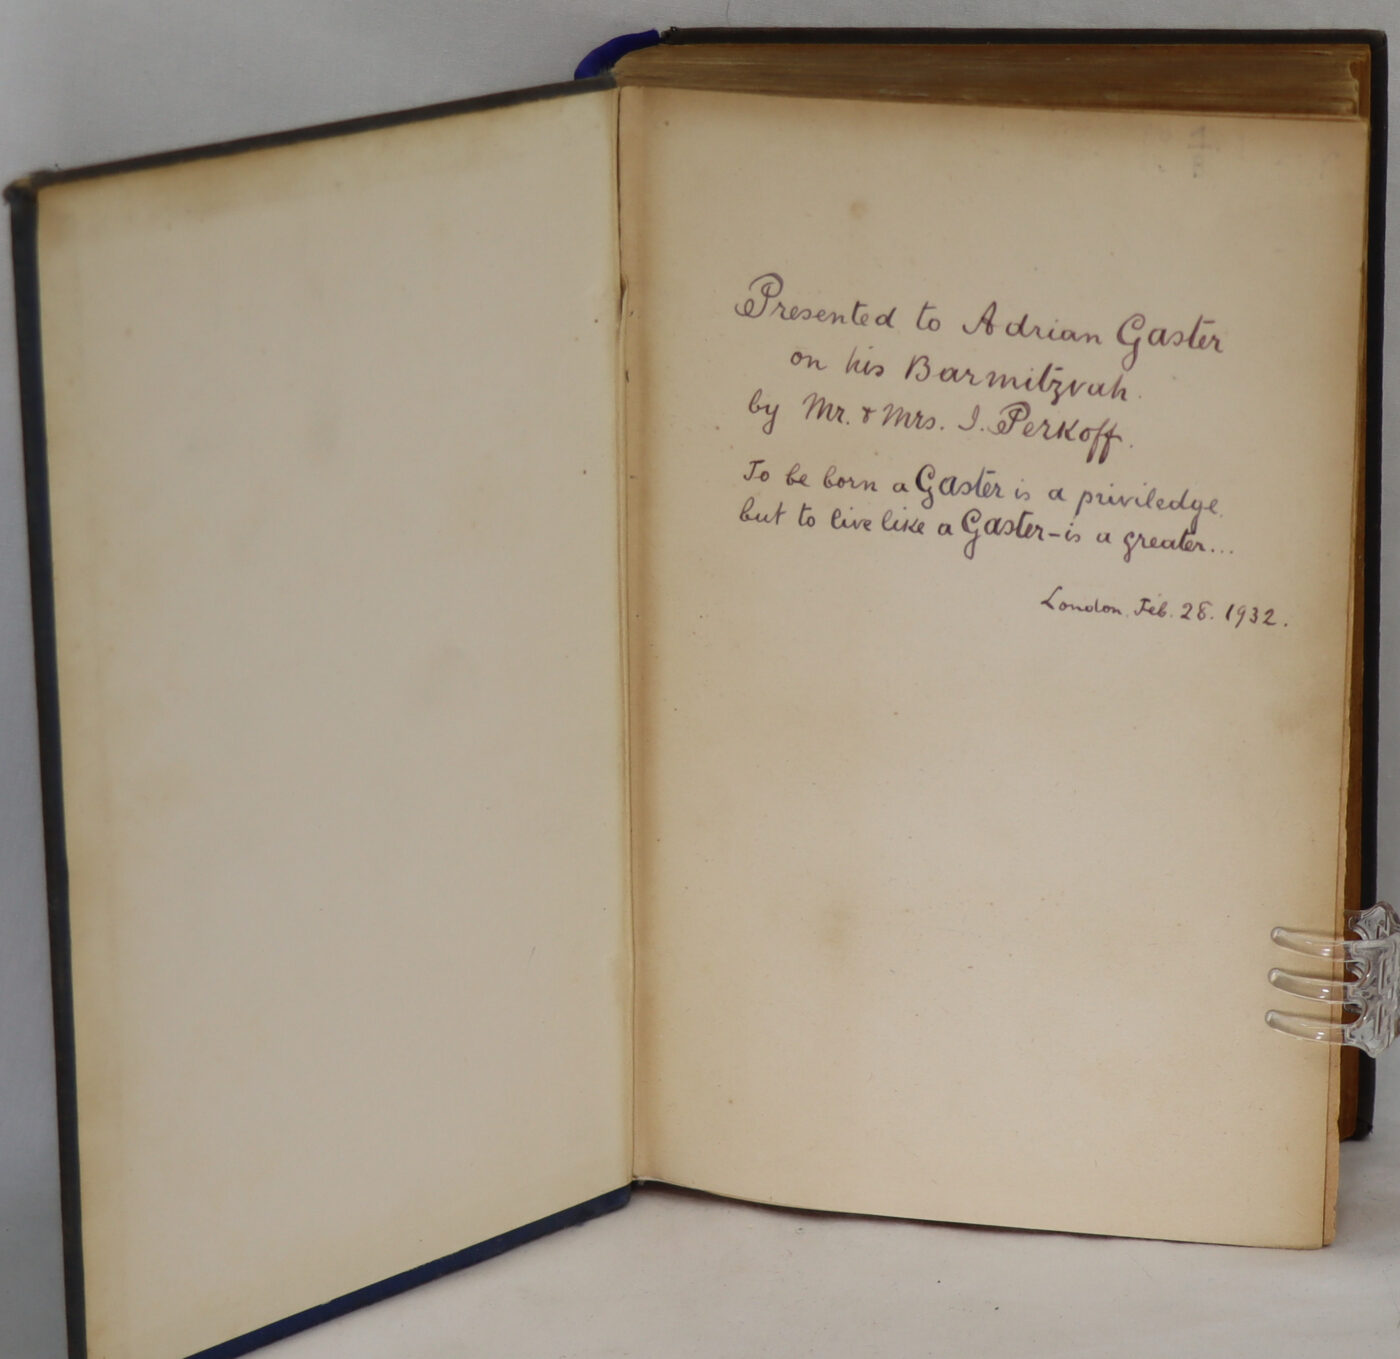 Presented to Adrian Gaster
on his Barmitzvah.
by Mr. & Mrs. I. Perkoff.
To be born a Gaster is a priviledge
but to live like a Gaster - is a greater...
London. Feb. 28. 1932.